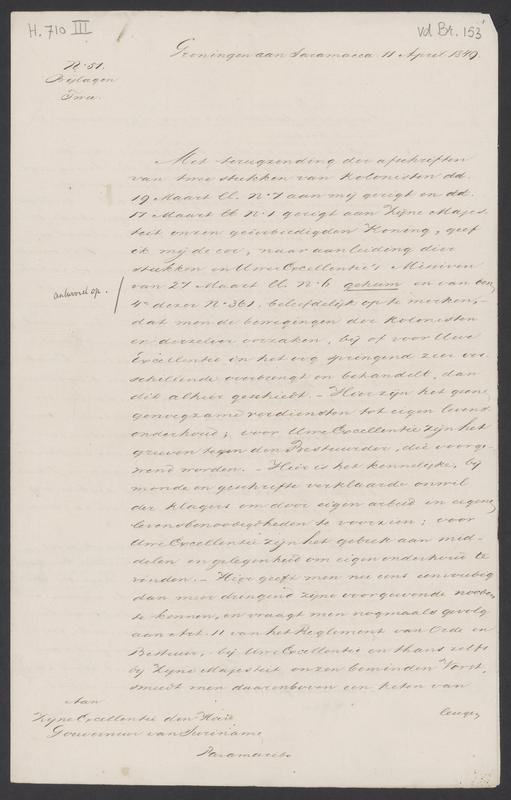 H. 710 III
vd Br. 153
Groningen aan Saramacca 11 April 1849.
No. 51.
Bijlagen
Twee.
Met terugzending der afschriften
van twee stukken van Kolonisten dd.
19 Maart ll. No. 7 aan mij gerigt en dd.
17 Maart ll No. 1 gerigt aan Zijne Majes-
teit onzen geëerbiedigden Koning, geef
ik mij de eer, naar aanleiding dier
stukken en Uwe Excellentie's Missiven
van 27 Maart ll. No. 6 geheim en van den
antwoord op.
4en dezer No. 361, beleefdelijk op te merken,
dat men de bewegingen der Kolonisten
en derzelver oorzaken, bij of voor Uwe
Excellentie in het oog springend zeer ver-
schillende overbrengt en behandelt, dan
dit alhier geschiedt. - Hier zijn het geene
genoegzame verdiensten tot eigen levens-
onderhoud; voor Uwe Excellentie zijn het
grieven tegen den Bestuurder, die voorge-
wend worden. - Hier is het kennelijke, bij
monde en geschrifte verklaarde onwil
der klagers om door eigen arbeid in eigene
levensbenoodigdheden te voorzien; voor
Uwe Excellentie zijn het gebrek aan mid-
delen en gelegenheid om eigen onderhoud te
vinden. - Hier geeft men nu eens eenvoudig
dan meer dringend zijne voorgewende nooden
te kennen, en vraagt men nogmaals gevolg
aan Art. 11 van het Reglement van Orde en
Bestuur; bij Uwe Excellentie en thans zelfs
bij Zijne Majesteit onzen beminden Vorst,
smeedt men daarenboven een keten van
leugen
Aan
Zijne Excellentie den Heer
Gouverneur van Suriname
Paramaribo